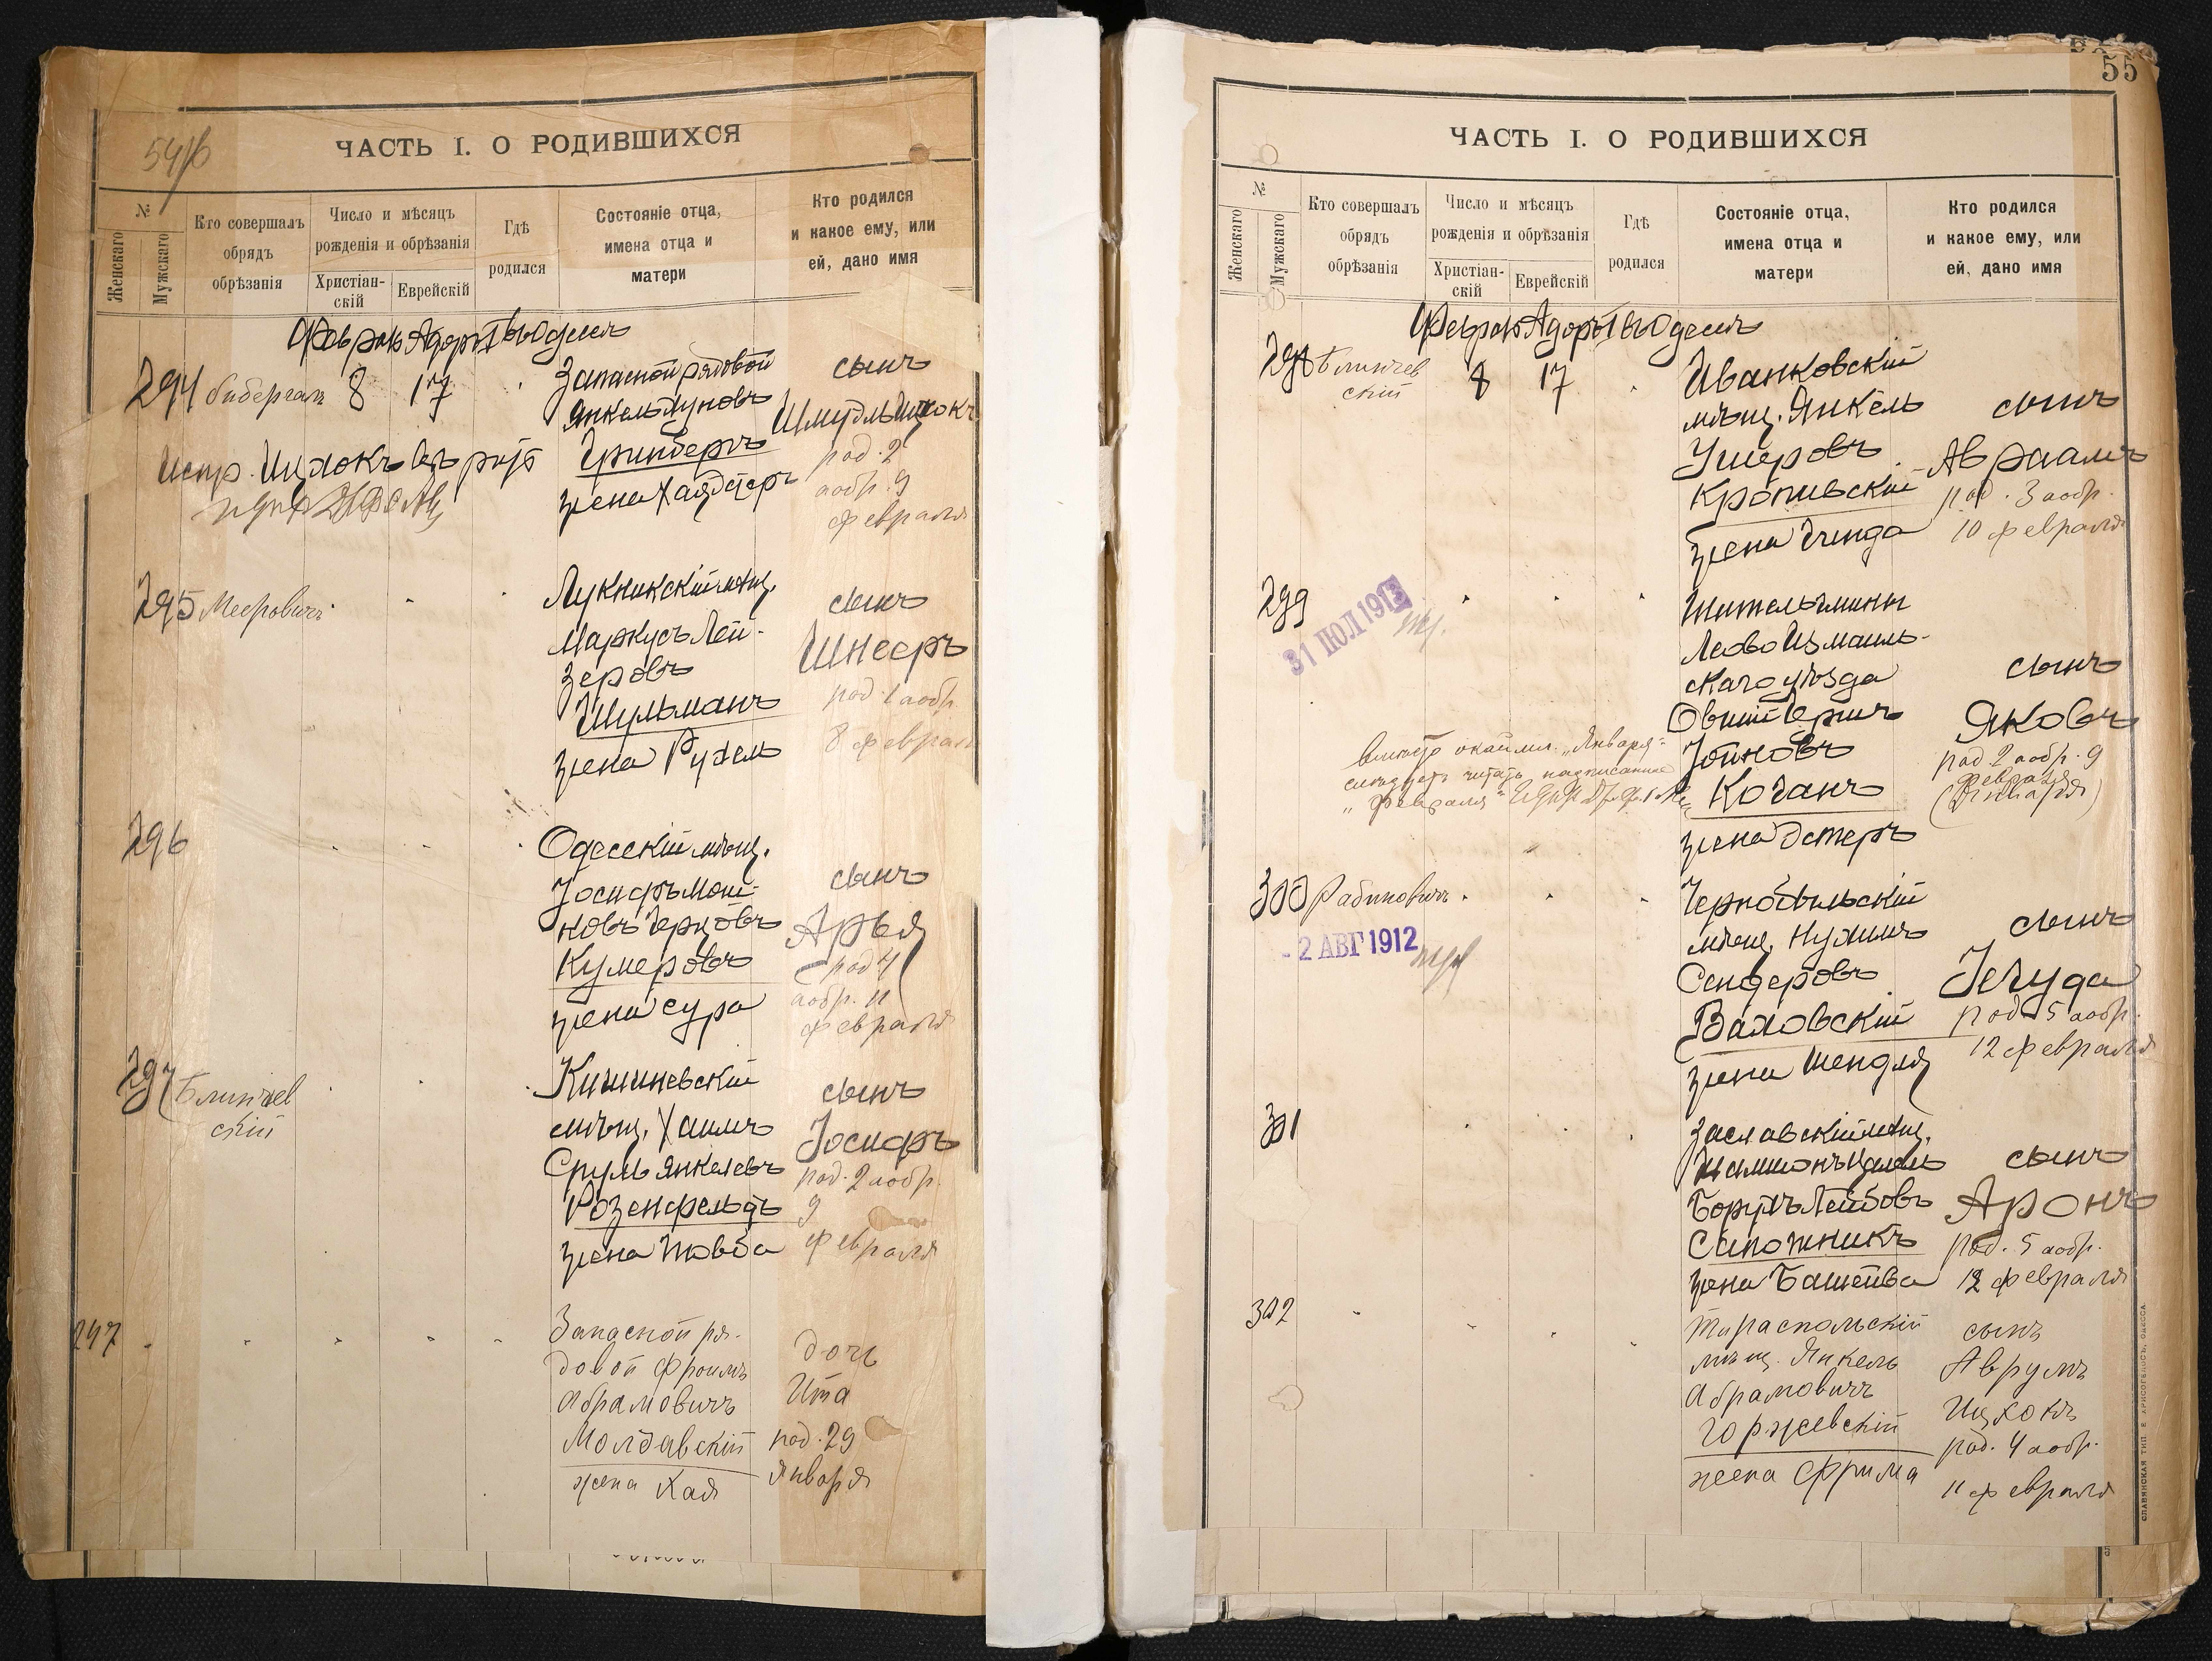 54/б
ЧАСТЬ I. О РОДИВШИХСЯ
№
Женскаго
Мужскаго
Кто совершалъ
обрядъ
обрѣзанія
Число и мѣсяцъ
рожденія и обрѣзанія
Христіан-
скій
Еврейскій
Гдѣ
родился
Состояніе отца,
имена отца и
матери
Кто родился
и какое ему, или
ей, дано имя
Феврал Адоръ I въ Одессѣ
294 Бибергал 8 17
Запасной рядовой
Янкель
Гринбергъ
жена Хая Эстеръ
сынъ
Шмуль Ицхокъ
род. 2
аобр. 9
февраля
Испр. Ицхокъ
295 Мееровичъ
Лукникскій мѣщ.
Маркусъ Лей-
зеровъ
Шульманъ
жена Рухель
сынъ
Шнееръ
род. 1 аобр.
8 феврал
296
Одесскій мѣщ.
Іосифъ Мош-
ковъ Герцовъ
Кумеровъ
жена Сура
сынъ
Арья
род 4
аобр. 11
февраля
297 Блинчев
скій
Кишиневскій
мѣщ. Хаимъ
Сруль Янкелевъ
Розенфельдъ
жена Товба
сынъ
Іосифъ
род. 2 аобр.
9
февраля
247
Запасной ря-
довой Фроимъ
Абрамовичъ
Молдавскій
жена Хая
дочь
Ита
род. 29
Января
55
ЧАСТЬ I. О РОДИВШИХСЯ
№
Женскаго
Мужскаго
Кто совершалъ
обрядъ
обрѣзанія
Число и мѣсяцъ
рожденія и обрѣзанія
Христіан-
скій
Еврейскій
Гдѣ
родился
Состояніе отца,
имена отца и
матери
Кто родился
и какое ему, или
ей, дано имя
Феврал Адоръ I въ Одессѣ
298 Блинчев
скій
8 17
Иванковскій
мѣщ. Янкель
Ушеровъ
Кропивскій
жена Гинда
сынъ
Авраамъ
род. 3 аобр.
10 февраля
299
31 ІЮЛ 1913
Житель
Леово Измаиль-
скаго уѣзда
Овшій Бершъ
Іойновъ
Коганъ
жена Эстеръ
сынъ
Яковъ
род 2 аобр. 9
февраля
(Января)
Вмѣсто "Января"
слѣдуетъ читать надписанное
"февраля"
300 Рабиновичъ
- 2 АВГ 1912
Чернобыльскій
мѣщ. Нухимъ
Сендеровъ
Валовскій
жена Шендля
сынъ
Іегуда
род 5 аобр.
12 февраля
301
Заславскій мѣщ.
Борухъ Лейбовъ
Сапожникъ
жена Башейва
сынъ
Аронъ
род. 5 аобр.
12 февраля
302
Тираспольскій
мѣщ. Янкель
Абрамовичъ
Горжевскій
жена Фрима
сынъ
Аврумъ
Ицхокъ
род. 4 аобр.
11 февраля
СЛАВЯНСКАЯ ТИП. Е. ХРИСОГЕЛОСЪ, ОДЕССА.